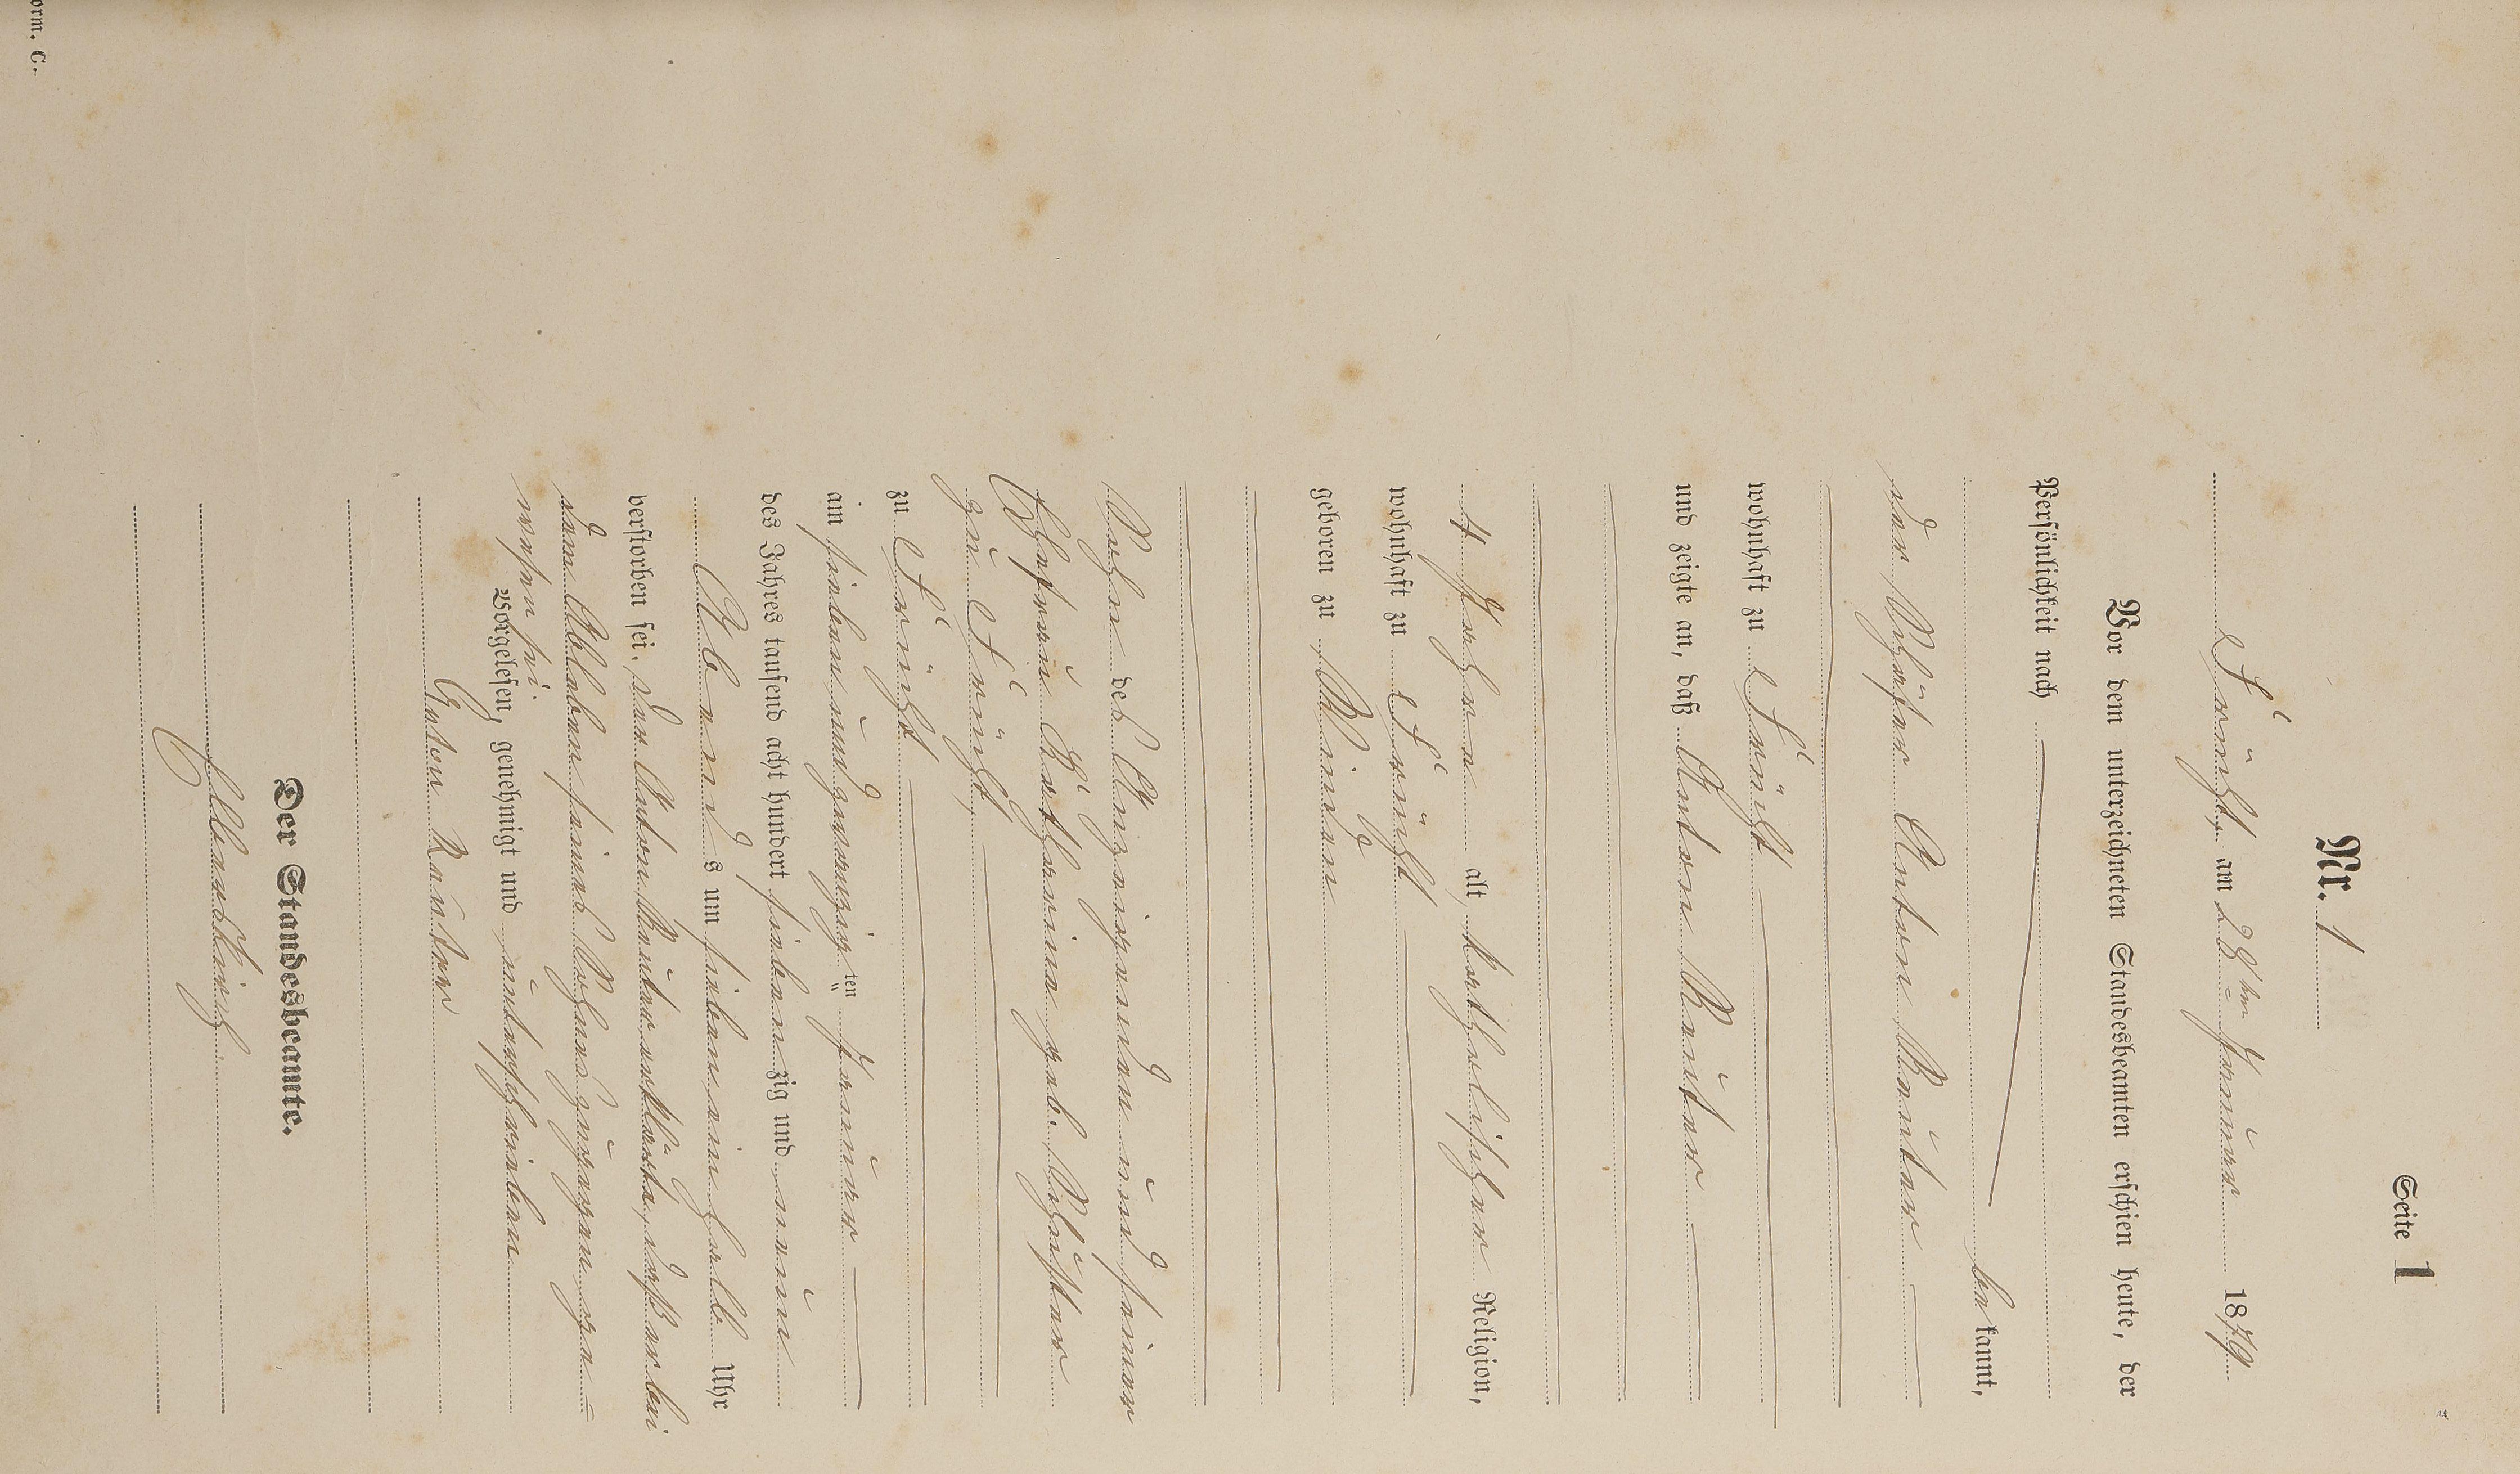 Seite 1
Nr. 1
Frücht, am 28ten Januar 1879
Vor dem unterzeichneten Standesbeamten erschien heute, der
Persönlichkeit nach
bekannt,
der Schäfer Anton Reuter
wohnhaft zu Frücht
und zeigte an, daß Anton Reuter
4 Jahre alt, katholischer Religion,
wohnhaft zu Frücht
geboren zu
Sohn des Anzeigenden und seiner
Ehefrau Katharina geb.
zu Frücht,
zu Frücht
am sieben und zwanzigten Januar
des Jahres tausend acht hundert siebenzig und neun
Abends um sieben einhalb Uhr
verstorben sei, der Anton Reuter erklärte, daß er bei
dem Ableben seines Sohnes zugegen ge=
wesen sei.
Vorgelesen, genehmigt und unterschrieben
Anton Reuter
Der Standesbeamte.
orm. C.